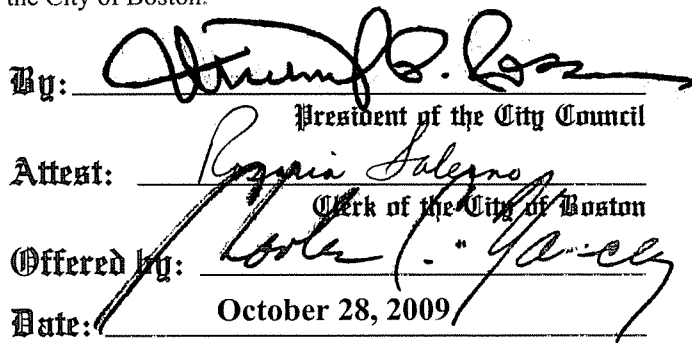 the City of Boston.
By:
President of the City Council
Attest: Rosaria Salerno
Clerk of the City of Boston
Offered by: Charles C. Yancey
Date: October 28, 2009